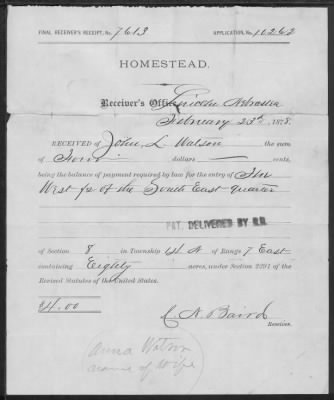 FINAL RECEIVER'S RECEIPT, No. 7613 APPLICATION, No. 10262
HOMESTEAD.
Receiver's Office, Lincoln Nebraska
February 23rd, 1878.
RECEIVED of John L. Watson
of Four dollars — cents,
being the balance of payment required by law for the entry of The
West ½ of the South East quarter
PAT. DELIVERED BY R.R.
of Section 8 in Township 14 N of Range 7 East
containing Eighty acres, under Section 2291 of the
Revised Statutes of the United States.
$4.00
C. N. Baird
Receiver.
Anna Watson
name of Wife